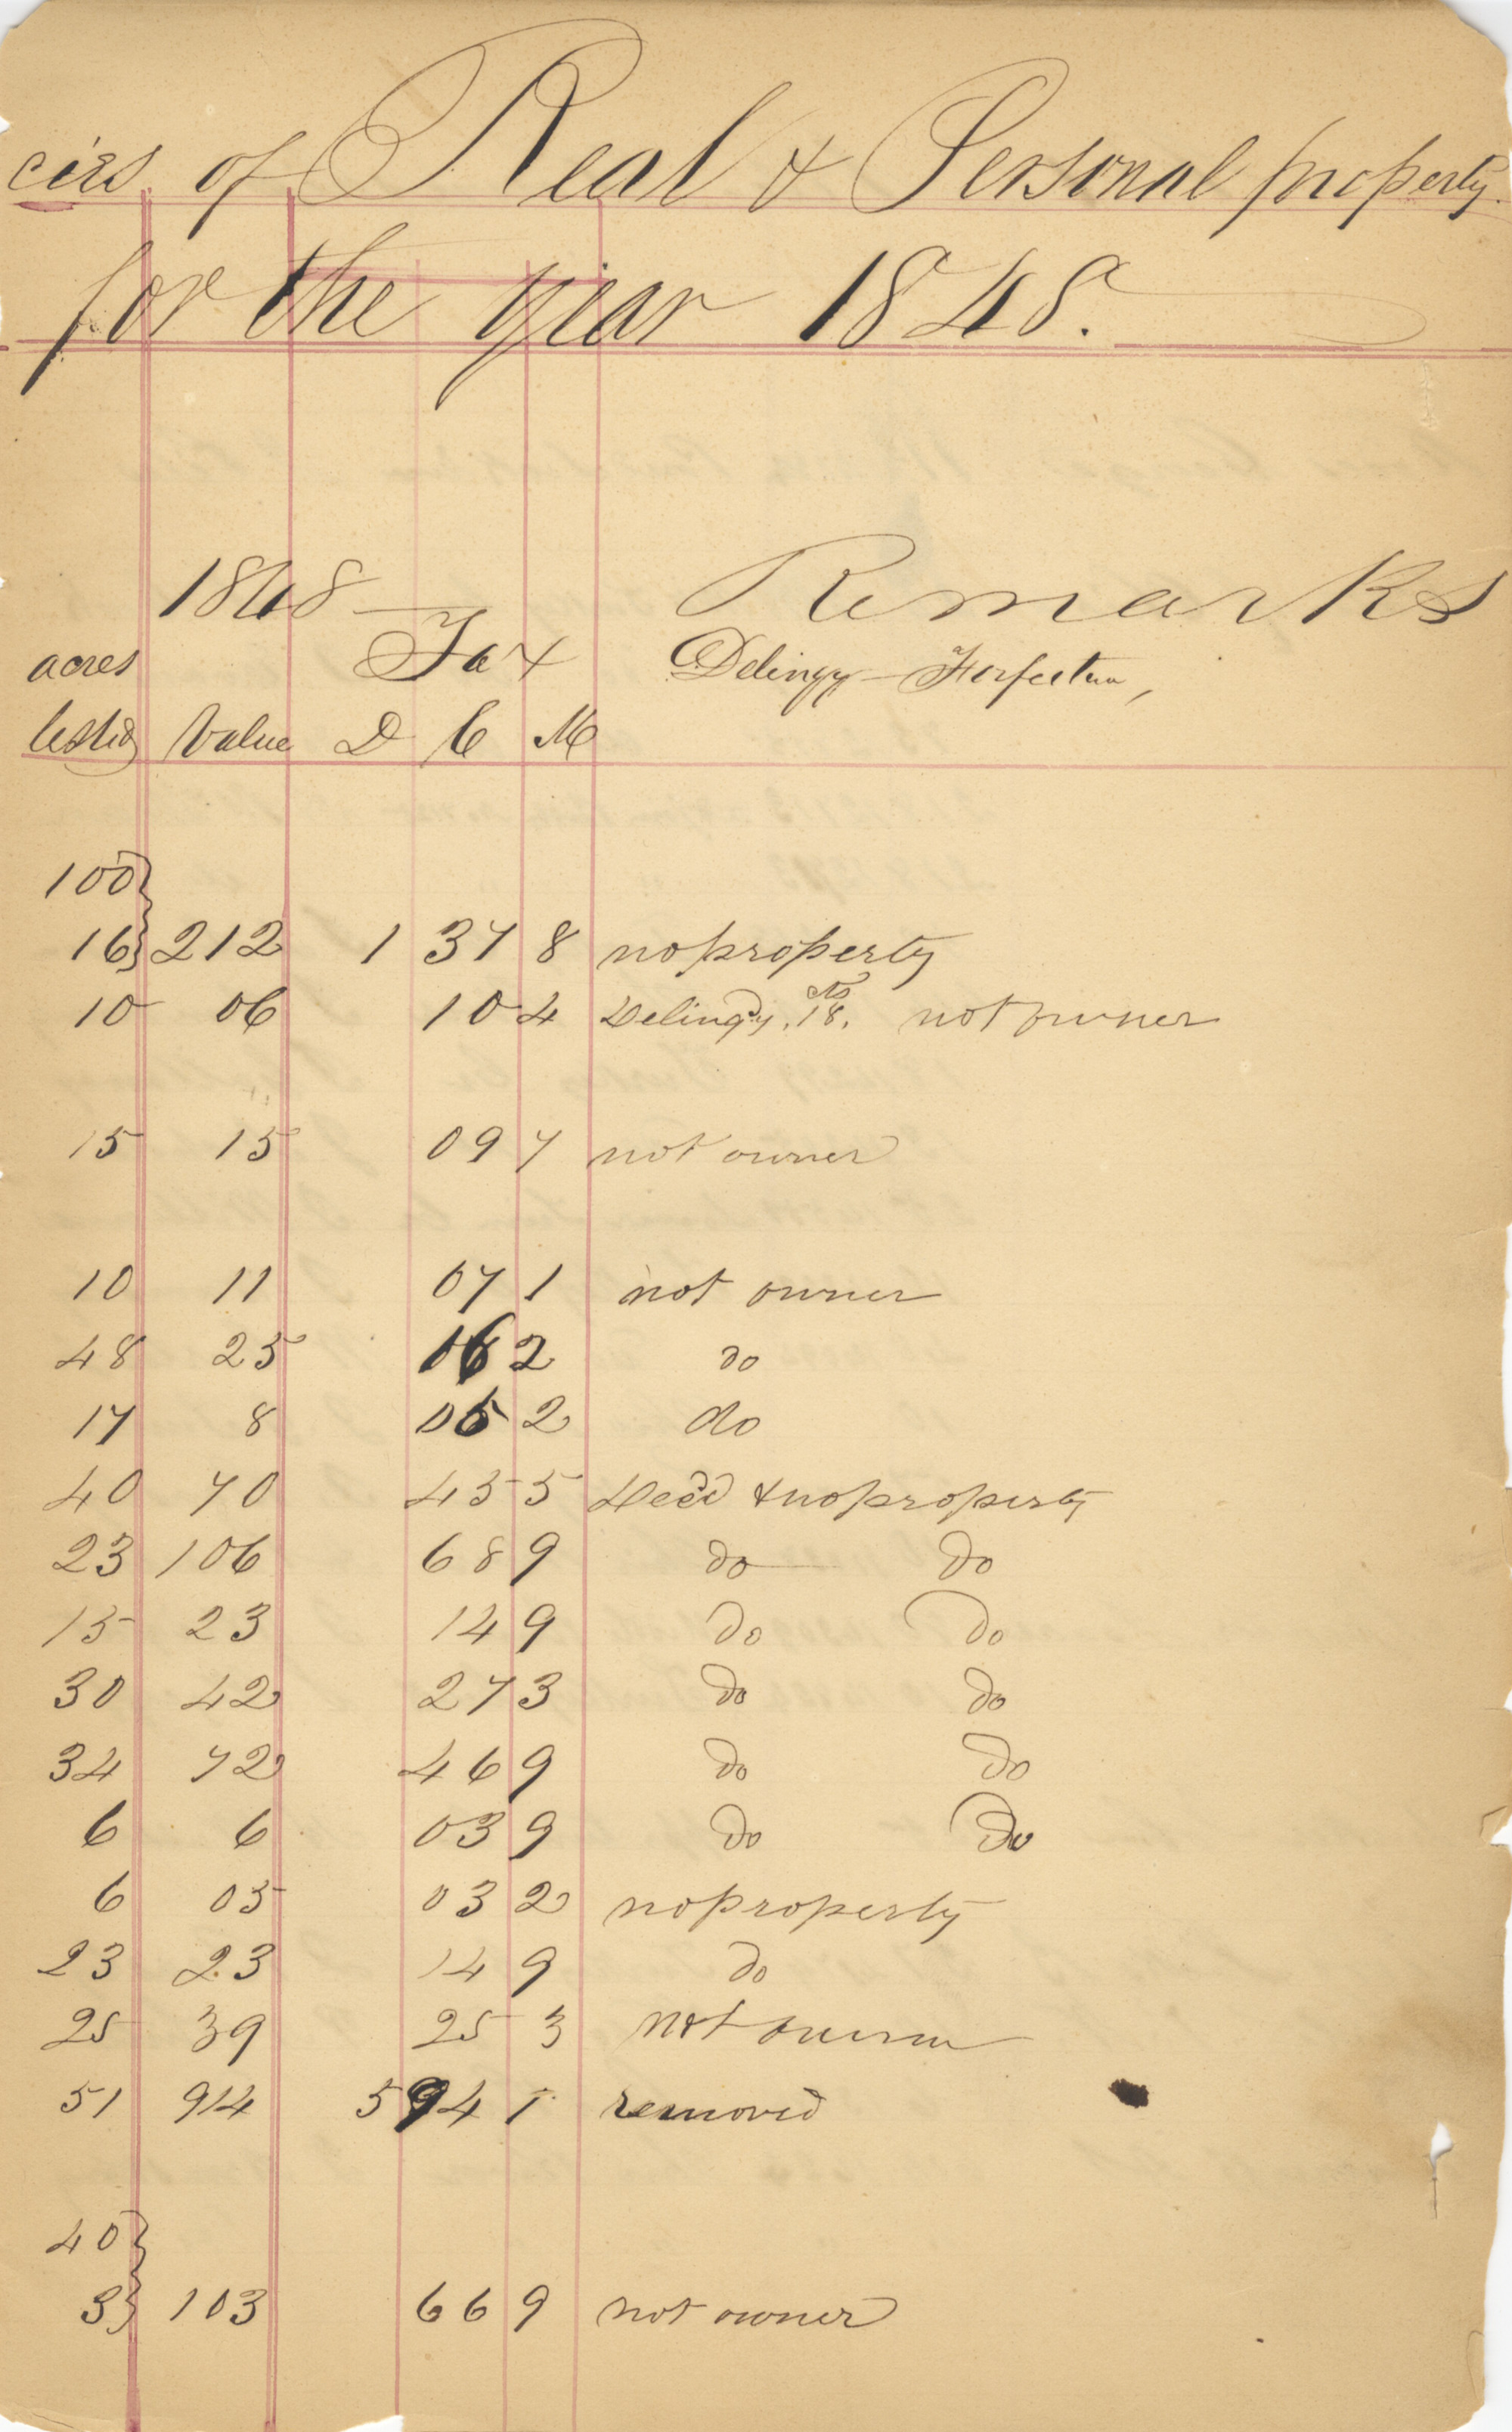 cies of Real & Personal property
for the year 1848.
1848
Remarks
acres Tax Delinqy - Forfeiture,
listed Value D C M
100
16 212 1 37 8 no property
10 06 10 4 Delinqy. cts 18. not owner
15 15 09 7 not owner
10 11 07 1 not owner
48 25 16 2 do
17 8 05 2 do
40 70 45 5 Decd & no property
23 106 68 9 do do
15 23 14 9 do do
30 42 27 3 do do
34 72 46 9 do do
6 6 03 9 do do
6 05 03 2 no property
23 23 14 9 do
25 39 25 3 not owner
51 914 5 94 1 removed
40
3 103 66 9 not owner